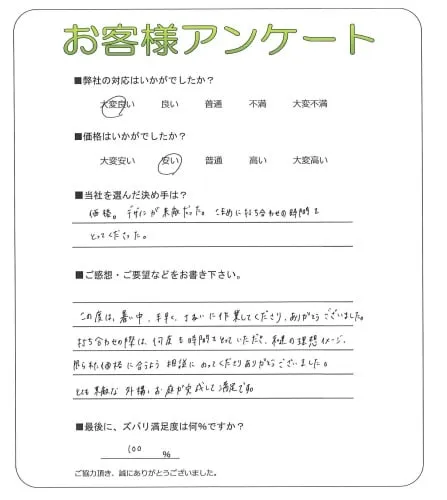 お客様アンケート
■弊社の対応はいかがでしたか？
大変良い 良い 普通 不満 大変不満
■価格はいかがでしたか？
大変安い 安い 普通 高い 大変高い
■当社を選んだ決め手は？
価格。デザインが素敵だった。こまめに打ち合わせの時間を
とってくださった。
■ご感想・ご要望などをお書き下さい。
この度は、暑い中、手早く、きれいに作業してくださり、ありがとうございました。
打ち合わせの際は、何度も時間をとっていただき、私達の理想、イメージ、
限られた価格に合うよう相談にのってくださりありがとうございました。
とても素敵な外構、お庭が完成して満足です。
■最後に、ズバリ満足度は何%ですか？
100 %
ご協力頂き、誠にありがとうございました。